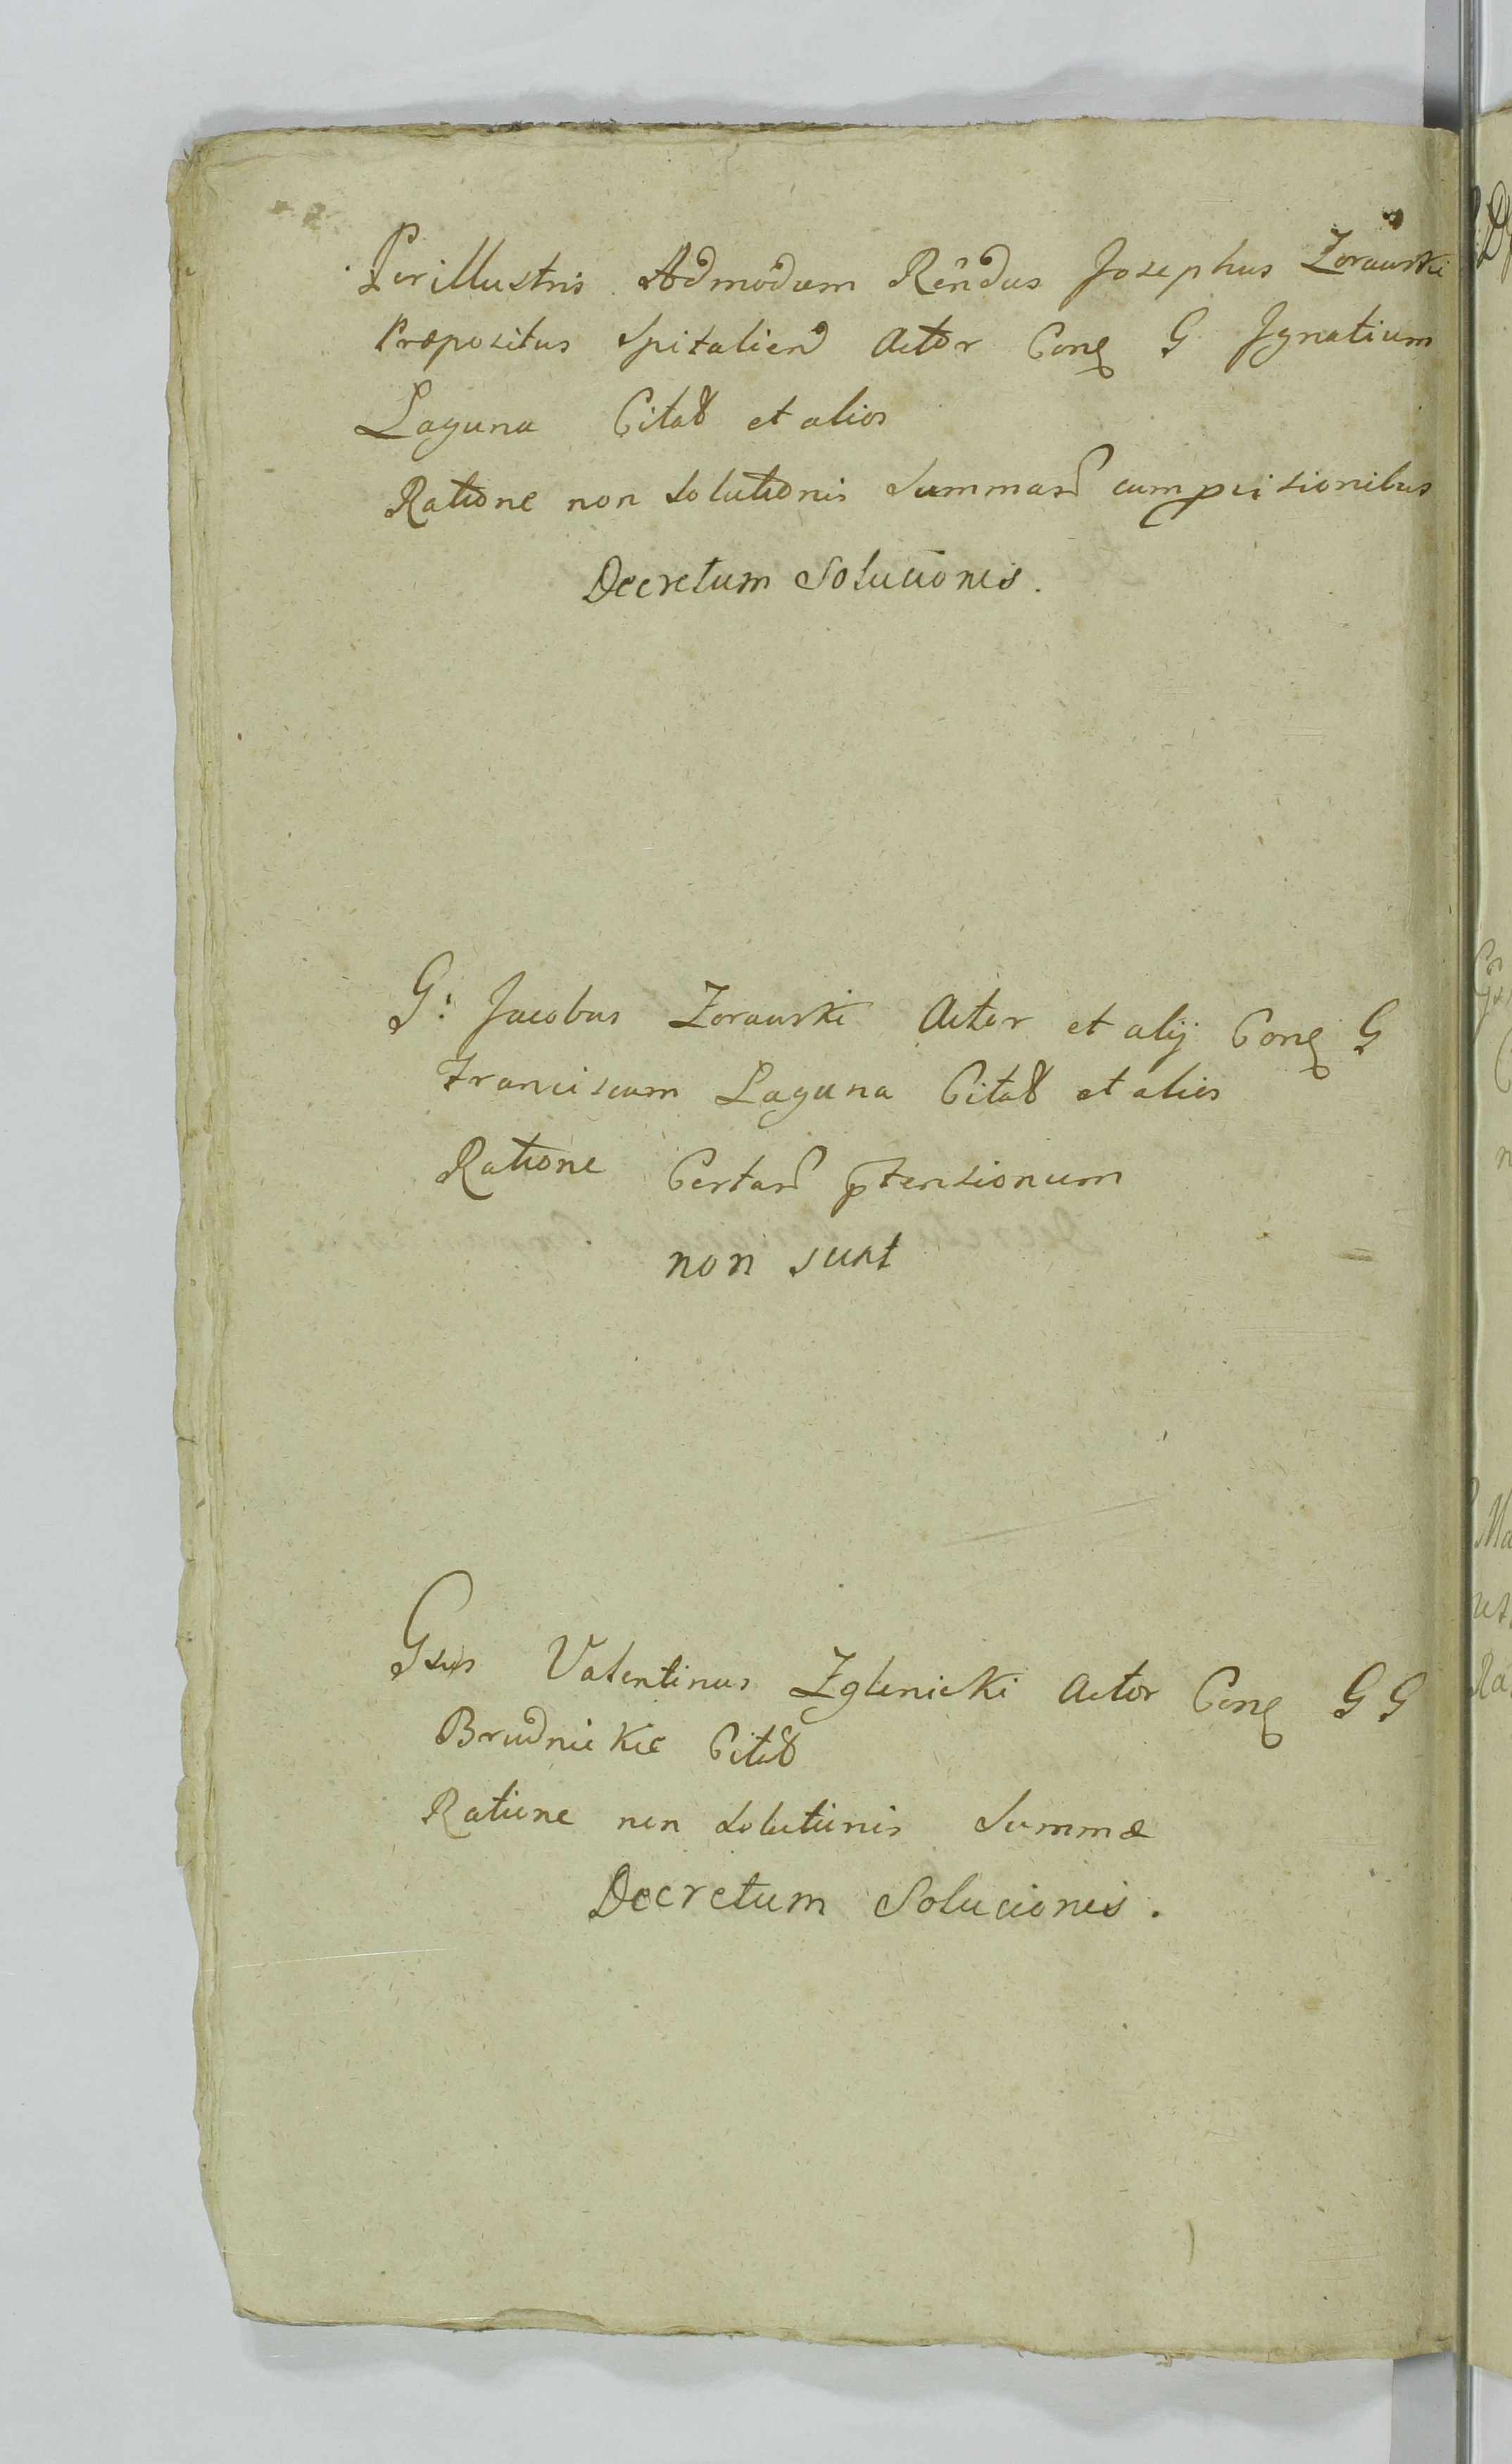 Perillustris Admodum Rendus Josephus Zorawski
Præpositus Spitalien Actor Conq G Ignatium
Laguna Citat et alios
Ratione non Solutionis Summar cum pvisionibus
Decretum Solucionis.
G: Jacobus Zorawski Actor et alij Conq G
Franciscum Laguna Citat et alios
Ratione Certar ptensionum
non sunt
Gsus Valentinus Zglenicki Actor Conq GG
Brudnickie Citat
Ratione non Solutionis Summæ
Decretum Solucionis.